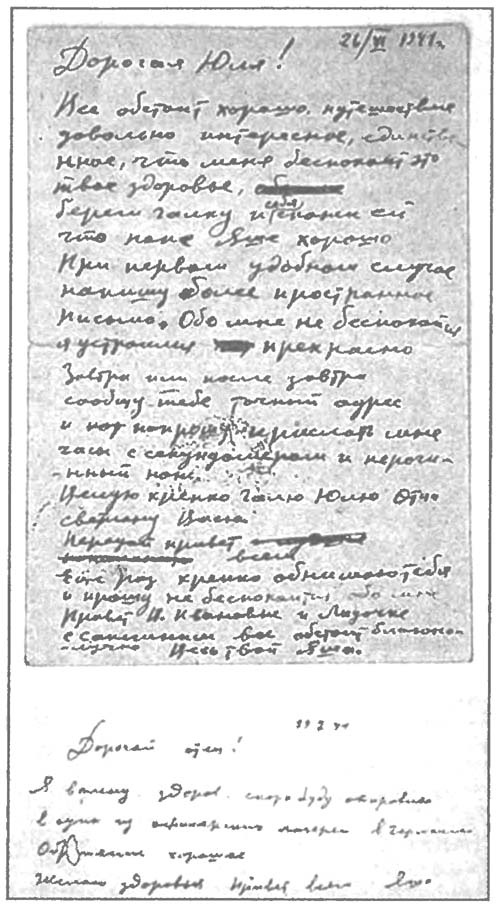 26/VI 1941г.
Дорогая Юля!
Все обстоит хорошо. путешествие
довольно интересное, единстве-
нное, что меня беспокоит это
твое здоровье,
себя
береги Галку и скажи ей
что папе Яше хорошо
При первом удобном случае
напишу более пространное
письмо. Обо мне не беспокойся
я устроился прекрасно
Завтра или после завтра
сообщу тебе точный адрес
и попрошу прислать мне
часы с секундомером и перочи-
-нный нож.
Целую крепко Галю Юлю Отца
Светлану Васю.
Передай привет
всем
Еще раз крепко обнимаю тебя
и прошу не беспокоится обо мне
Привет В. Ивановне и Лидочке
с Сапегиным все обстоит благопо-
-лучно Весь твой Яша.
19 7 41
Дорогой отец!
Я в плену здоров. скоро буду отправлен
в один из офицерских лагерей в Германии
Обращение хорошее
Желаю здоровья Привет всем Яша